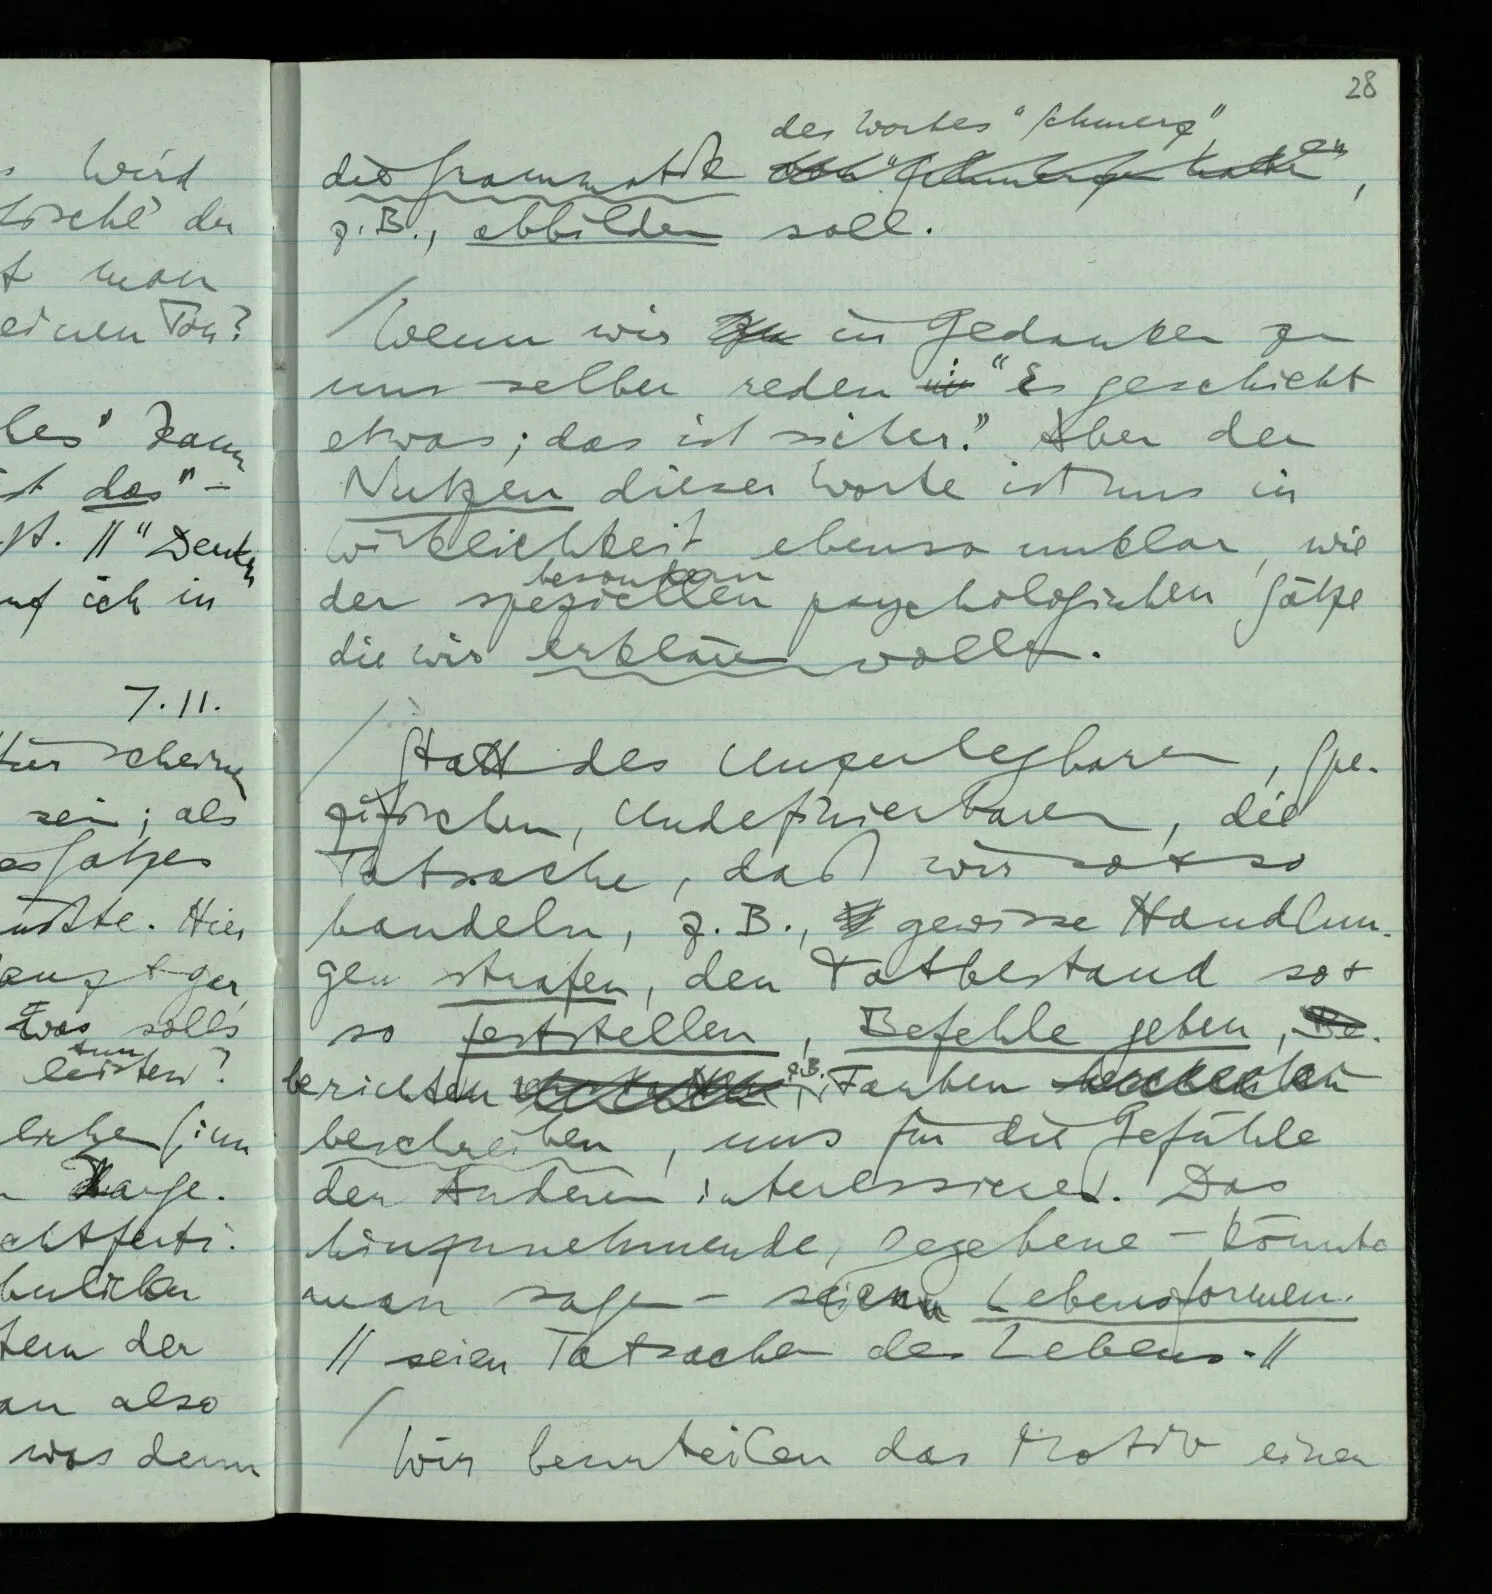 s wird
der
t man
einen Ton?
les" kann
ist das" –
st. // "Denken
auf ich in
7.11.
scheinen
sein; als
Satzes
müßte. Hier
Was soll's
tun
leisten?
Sinn
Lage.
chtferti-
hnlichen
tem der
an also
was denn
28
des Wortes "Schmerz"
die Grammatik von "Schmerzen haben",
z.B., abbilden soll.
/ Wenn wir zu in Gedanken zu
uns selber reden "Es geschieht
etwas; das ist sicher." Aber der
Nutzen dieser Worte ist uns in
Wirklichkeit ebenso unklar, wie
besondern
der speziellen psychologischen Sätze
die wir erklären wollen.
/ Statt des Unzerlegbaren, Spe-
zifischen, Undefinierbaren, die
Tatsache, daß wir so + so
handeln, z.B., gewisse Handlun-
gen strafen, den Tatbestand so +
so feststellen, Befehle geben, Be-
berichten z.B. Farben
beschreiben, uns für die Gefühle
der Anderen interessieren. Das
hinzunehmende, gegebene – könnte
man sagen – seien Lebensformen.
// seien Tatsachen des Lebens. //
/ Wir beurteilen das Motiv einer